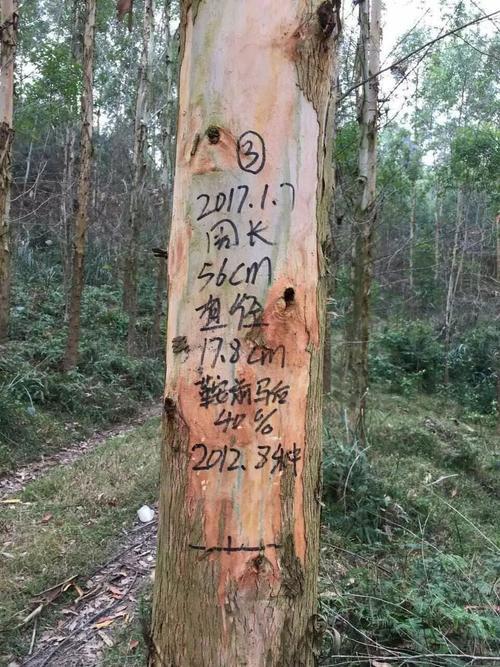 ③
2017.1.7
周长
56cm
直径
17.8cm
鞍前马后
40%
2012.8种